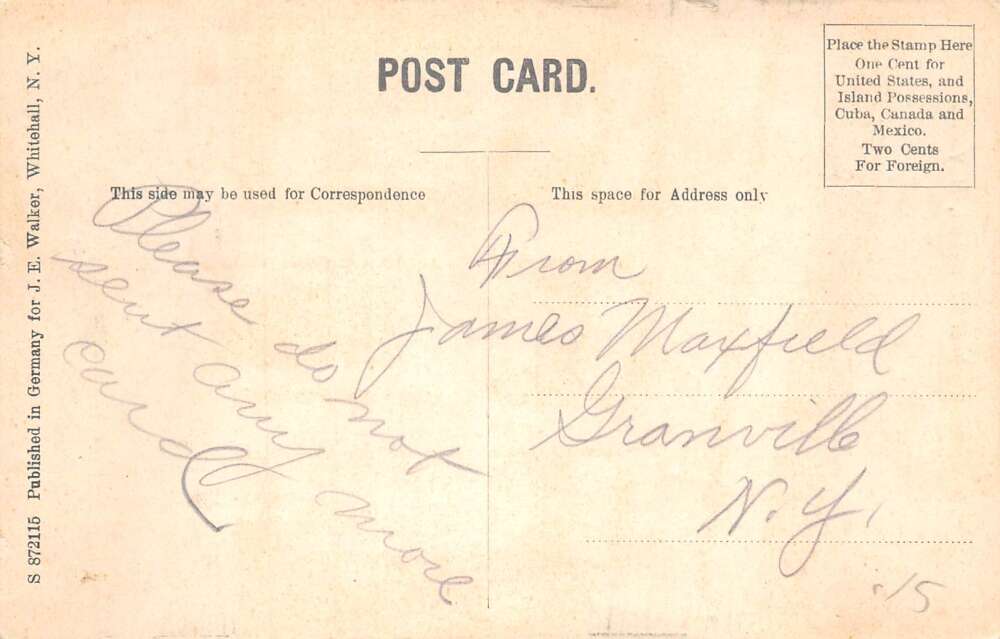 POST CARD.
Place the Stamp Here
One Cent for
United States, and
Island Possessions,
Cuba, Canada and
Mexico.
Two Cents
For Foreign.
This side may be used for Correspondence
This space for Address only
Please do not
sent any more
cards
From
James Maxfield
Granville
N.Y.
.15
S 872115 Published in Germany for J. E. Walker, Whitehall, N. Y.